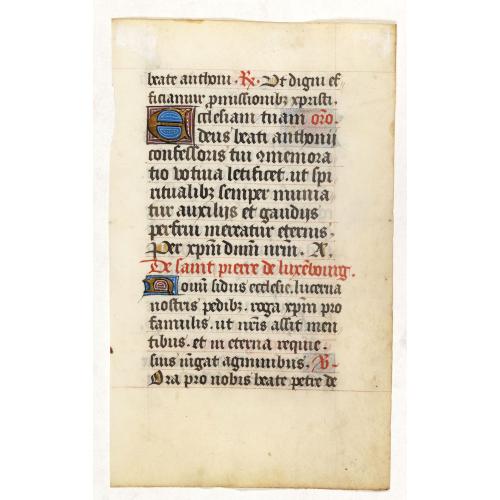 beate anthoni. R. Ut digni ef
ficiamur p̄missionibꝫ xpristi.
Ecclesiam tuam or̄o.
deus beati anthonii
confessoris tui ꝯmemora
tio votiua letificet. ut spi
ritualibꝫ semper munia
tur auxiliis et gaudiis
perfrui mereatur eternis.
Per xp̄m dn̄m nr̄m. A.
De saint pierre de luxēbourg.
Nouū sidus ecclesie. lucerna
nostris pedibꝫ. roga xp̄m pro
famulis. ut nr̄is assit men
tibus. et in eterna requie.
suis iūgat agminibus. V.
Ora pro nobis beate petre de